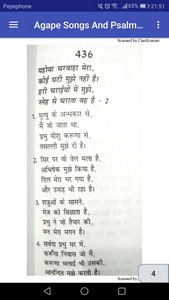 Pepephone
21:51
Agape Songs And Psalm...
Scanned by CamScanner
436
यहोवा चरवाहा मेरा,
कोई घटी मुझे नहीं है।
हरी चराइयों में मुझे,
स्नेह से चराता वह है - 2
1. मृत्यु के अन्धकार से,
मैं जो जाता था,
प्रभु यीशु करुणा से,
तसल्ली मुझे दी है।
2. सिर पर वो तेल मला है,
अभिषेक मुझे किया है,
दिल मेरा भर गया है,
और उमड़ भी रहा है।
3. शत्रुओं के सामने,
मेज को बिछाता है,
प्रभु ने जो तैयार की,
मन मेरा मगन है।
4. सर्वदा प्रभु घर में,
करूँगा निवास जो मैं,
करूणा भलाई भी उसकी,
आनन्दित मुझे करती है।
Scanned by
4